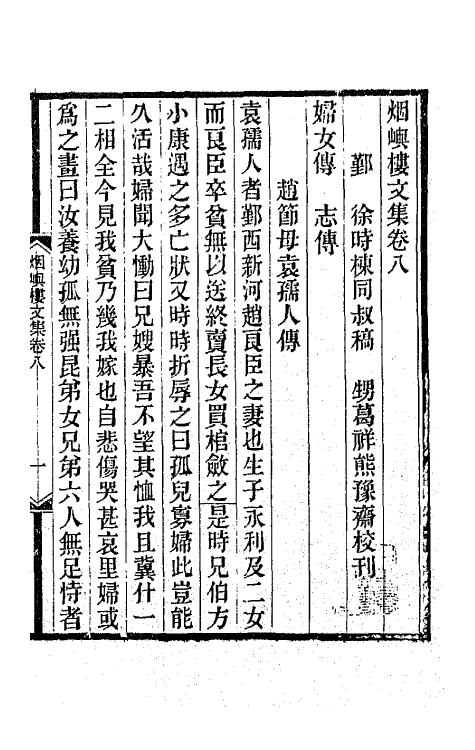 烟嶼樓文集卷八
鄞　徐時棟同叔稿　甥葛祥熊豫齋校刊
婦女傳　志傳
趙節母袁孺人傳
袁孺人者鄞西新河趙良臣之妻也生子永利及二女
而良臣卒貧無以送終賣長女買棺斂之是時兄伯方
小康遇之多亡狀又時時折辱之曰孤兒寡婦此豈能
久活哉婦聞大慟曰兄嫂暴吾不望其恤我且冀什一
二相全今見我貧乃幾我嫁也自悲傷哭甚哀里婦或
爲之畫曰汝養幼孤無强昆弟女兄弟六人無足恃者
烟嶼樓文集卷八
一